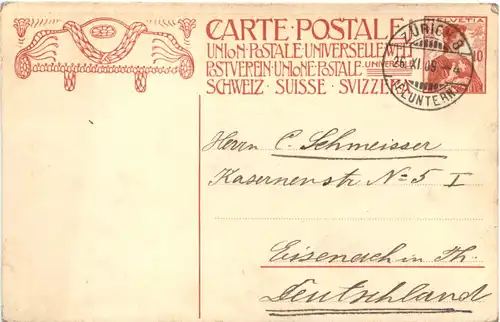 CARTE·POSTALE
HELVETIA
UNION·POSTALE·UNIVERSELLE·WELT
POSTVEREIN·UNIONE·POSTALE·UNIVERSALE
SCHWEIZ·SUISSE·SVIZZERA
10
ZÜRICH 8
25.XI.09.-4
(FLUNTERN)
Herrn C. Schmeisser
Kasernenstr No 5 I
Eisenach in Th.
Deutschland